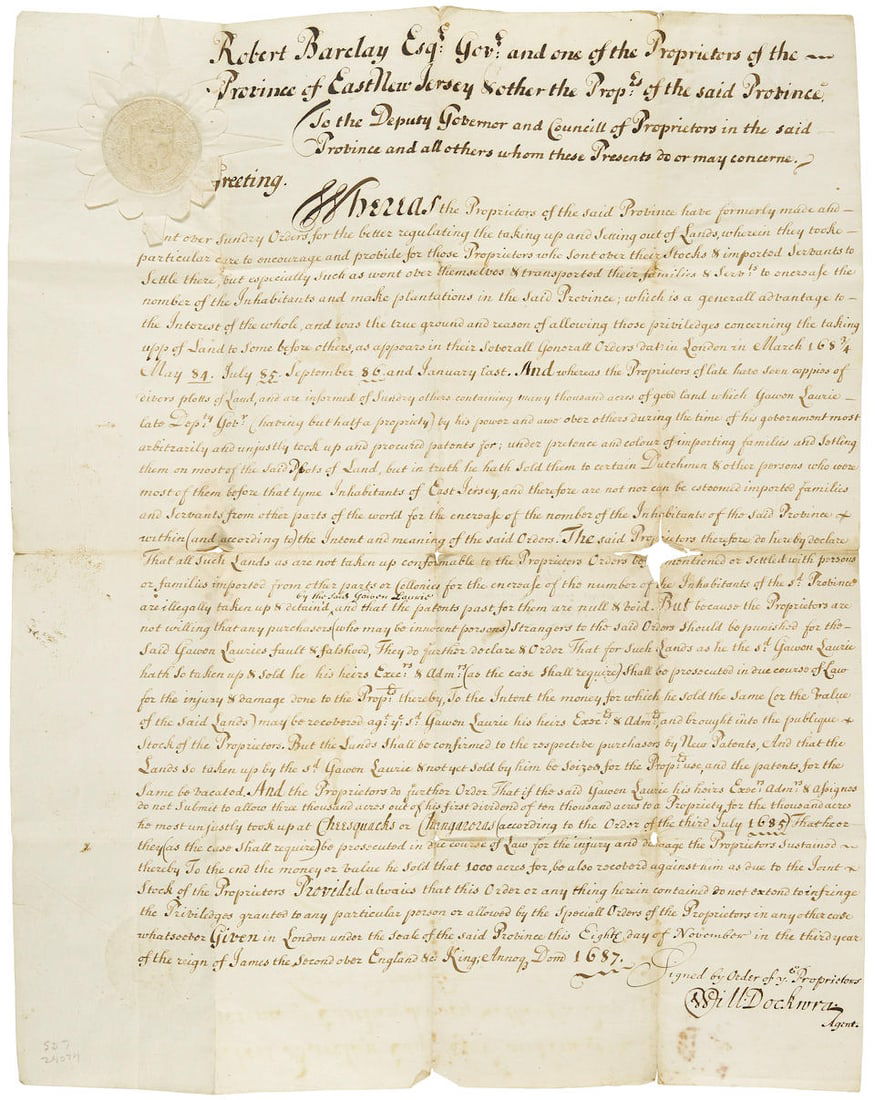 Robert Barclay Esqr. Govr. and one of the Proprietors of the
Province of East New Jersey & other the Proprs. of the said Province,
To the Deputy Governor and Councill of Proprietors in the said
Province and all others whom these Presents do or may concerne.
Greeting.
Whereas the Proprietors of the said Province have formerly made and
sent over Sundry Orders, for the better regulating the taking up and Setting out of Lands, wherein they tooke
particular care to encourage and provide for those Proprietors who sent over their Stocks & imported Servants to
Settle there, but especially such as went over themselves & transported their families & Servts. to encrease the
nomber of the Inhabitants and make plantations in the said Province; which is a generall advantage to
the Interest of the whole, and was the true ground and reason of allowing those priviledges concerning the taking
upp of Land to some before others, as appears in their severall Generall Orders dat: in London in March 168¾
May 84. July 85. September 86 and January last. And whereas the Proprietors of late have seen coppies of
divers plotts of Land, and are informed of Sundry others containing many thousand acres of good land which Gawen Laurie
late Depty Govr (having but half a propriety) by his power and awe over others during the time of his government most
arbitrarily and unjustly took up and procured patents for; under pretence and colour of importing families and setling
them on most of the said Plots of Land, but in truth he hath Sold them to certain Dutchmen & other persons who were
most of them before that tyme Inhabitants of East Jersey, and therefore are not nor can be esteemed imported families
and Servants from other parts of the world for the encrease of the nomber of the Inhabitants of the said Province &
within (and according to) the Intent and meaning of the said Orders. The said Proprietors therefore do hereby declare
That all Such Lands as are not taken up conformable to the Proprietors Orders mentioned or settled with persons
or families imported from other parts or Collonies for the encrease of the number of the Inhabitants of the sd. Province
are illegally taken up & detaind by the said Gawen Laurie and that the patents past for them are null & void. But because the Proprietors are
not willing that any purchasers (who may be innocent persons) Strangers to the said Orders should be punished for the
Said Gawen Lauries fault & falshood, They do further declare & Order That for such Lands as he the sd. Gawen Laurie
hath so taken up & sold he his heirs Execrs & Admrs (as the case shall require) shall be prosecuted in due course of Law
for the injury & damage done to the Proprs thereby, To the Intent the money, for which he sold the same (or the value
of the said Lands) may be recovered agt. ye. sd. Gawen Laurie his heirs Execrs & Admrs, and brought into the publique
Stock of the Proprietors. But the Lands shall be confirmed to the respective purchasers by New Patents, And that the
Lands so taken up by the sd. Gawen Laurie & not yet sold by him be seized for the Proprs use, and the patents for the
Same be vacated. And the Proprietors do further Order That if the said Gawen Laurie his heirs Execrs Admrs & Assignes
do not Submit to allow three thousand acres out of his first dividend of ten thousand acres to a Propriety for the thousand acres
he most unjustly took up at Cheesquacks or Chingaroras (according to the Order of the third July 1685) That he or
they (as the case shall require) be prosecuted in due course of Law for the injury and damage the Proprietors Sustained
thereby To the end the money or value he sold that 1000 acres for, be also recoverd against him as due to the Joint
Stock of the Proprietors Provided alwaies that this Order or any thing herein contained do not extend to infringe
the Priviledges granted to any particular person or allowed by the Speciall Orders of the Proprietors in any other case
whatsoever Given in London under the Seale of the said Province this Eight day of November in the third year
of the reign of James the Second over England &c King; Annoq Dom 1687.
Signed by Order of ye Proprietors
Will: Dockwra
Agent.
SD7
24074